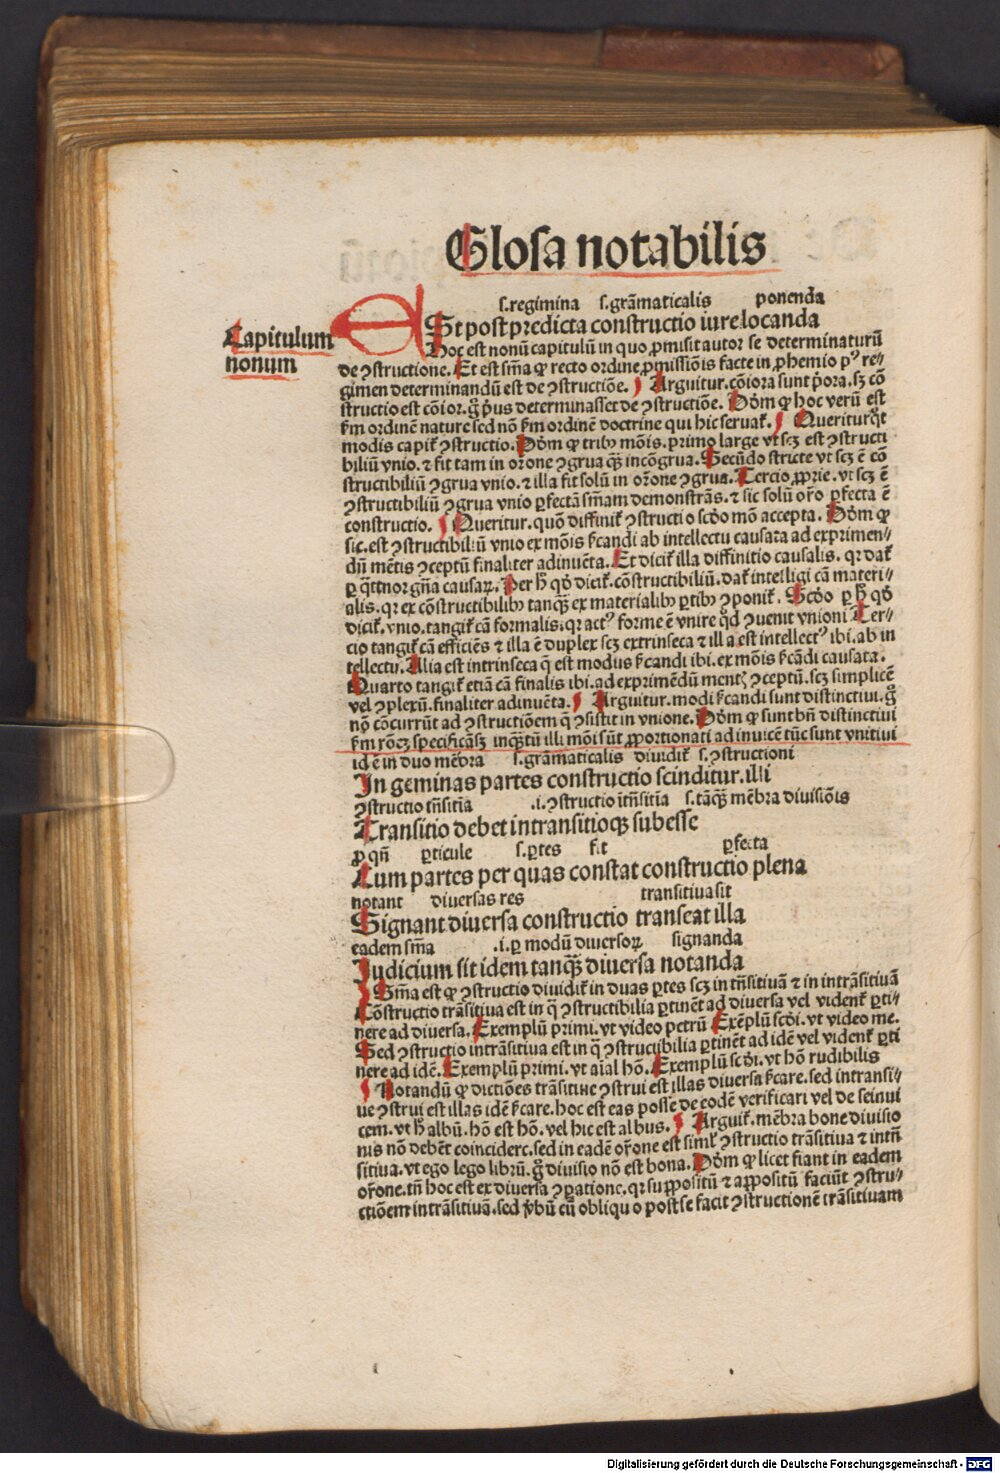 Glosa notabilis
s.regimina s.grãmaticalis ponenda
Capitulum
nonum
ESt post predicta constructio iure locanda
Hoc est nonũ capitulũ in quo ꝓmisit autor se determinaturũ
de ꝯstructione. Et est sm̃a ꝙ recto ordine ꝓmissiõis facte in ꝓhemio pꝰ re⸗
gimen determinandũ est de ꝯstructiõe. Arguitur. cõiora sunt p̃ora. sꝫ cõ
structio est cõior. g̃ p̃us determinasset de ꝯstructiõe. Dõm ꝙ hoc verũ est
ẜm ordinẽ nature sed nõ ẜm ordinẽ doctrine qui hic seruat᷑. Queritur q̃t
modis capit᷑ ꝯstructio. Dõm ꝙ tribꝰ mõis. primo large vt scꝫ est ꝯstructi
biliũ vnio. ⁊ fit tam in or̃one ꝯgrua q̃ꝫ incõgrua. Secũdo stricte vt scꝫ ẽ cõ
structibiliũ ꝯgrua vnio. ⁊ illa fit solũ in or̃one ꝯgrua. Tercio ꝓprie. vt scꝫ ẽ
ꝯstructibiliũ ꝯgrua vnio ꝑfectã sm̃am demonstrãs. ⁊ sic solũ or̃o ꝑfecta ẽ
constructio. Queritur. quõ diffinit᷑ ꝯstructio scðo mõ accepta. Dõm ꝙ
sic. est ꝯstructibiliũ vnio ex mõis ẜcandi ab intellectu causata ad exprimen⸗
dũ mẽtis ꝯceptũ finaliter adinuẽta. Et dicit᷑ illa diffinitio causalis. qr dat᷑
ꝑ q̃ttuor gñа causaꝝ. Per h̃ qð dicit᷑. cõstructibiliũ. dat᷑ intelligi cã materi⸗
alis. qr ex cõstructibilibꝰ tanq̃ꝫ ex materialibꝰ ꝑtibꝰ ꝯponit᷑. Scðo ꝑ h̃ qð
dicit᷑. vnio. tangit᷑ cã formalis. qr actꝰ forme ẽ vnire q̃d ꝯuenit vnioni Ter⸗
cio tangit᷑ cã efficiẽs ⁊ illa ẽ duplex scꝫ extrinseca ⁊ illa est intellectꝰ ibi. ab in
tellectu. Alia est intrinseca q̃ est modus ẜcandi ibi. ex mõis ẜcãdi causata.
Quarto tangit᷑ etiã cã finalis ibi. ad exprimẽdũ mentꝭ ꝯceptũ. scꝫ simplicẽ
vel ꝯplexũ. finaliter adinuẽta. Arguitur. modi ẜcandi sunt distinctiui. g̃
nõ cõcurrũt ad ꝯstructiõem q̃ ꝯsistit in vnione. Dõm ꝙ sunt bñ distinctiui
ẜm rõeꝫ specificãsꝫ inq̃tũ illi mõi sũt ꝓportionati ad inuicẽ tũc sunt vnitiui
id ẽ in duo mẽbra s.grãmaticalis diuidit᷑ s.ꝯstructioni
In geminas partes constructio scinditur. illi
ꝯstructio trñsitĩa .i.ꝯstructio itrñsitĩa s.tãq̃ꝫ mẽbra diuisiõis
Transitio debet intransitioqꝫ subesse
ꝓ qñ ꝑticule s.ꝑtes fit ꝑfecta
Cum partes per quas constat constructio plena
notant diuersas res transitiua sit
Signant diuersa constructio transeat illa
eadem sm̃a .i.ꝑ modũ diuersoꝝ signanda
Judicium sit idem tanq̃ꝫ diuersa notanda
Sm̃a est ꝙ ꝯstructio diuidit᷑ in duas ꝑtes scꝫ in trñsitiuã ⁊ in intrãsitiuã
Cõstructio trãsitiua est in q̃ ꝯstructibilia ꝑtinẽt ad diuersa vel vident᷑ ꝑti⸗
nere ad diuersa. Exemplũ primi. vt video petrũ Exẽplũ scði. vt video me.
Sed ꝯstructio intrãsitiua est in q̃ ꝯstructibilia ꝑtinẽt ad idẽ vel vident᷑ ꝑti
nere ad idẽ. Exemplũ primi. vt aial hõ. Exemplũ scði. vt hõ rudibilis
Notandũ ꝙ dictiões trãsitiue ꝯstrui est illas diuersa ẜcare. sed intransi⸗
ue ꝯstrui est illas idẽ ẜcare. hoc est eas posse de eodẽ verificari vel de seinui
cem. vt h̃ albũ. hõ est hõ. vel hic est albus. Arguit᷑. mẽbra bone diuisio
nis nõ debẽt coincidere. sed in eadẽ or̃one est siml᷑ ꝯstructio trãsitiua ⁊ intrñ
sitiua. vt ego lego librũ. g̃ diuisio nõ est bona. Dõm ꝙ licet fiant in eadem
or̃one. tñ hoc est ex diuersa ꝯꝑatione. qr suꝓpositũ ⁊ aꝓpositũ faciũt ꝯstru⸗
ctiõem intrãsitiuã. sed ṽbũ cũ obliquo post se facit ꝯstructionẽ trãsitiuam
Digitalisierung gefördert durch die Deutsche Forschungsgemeinschaft - DFG